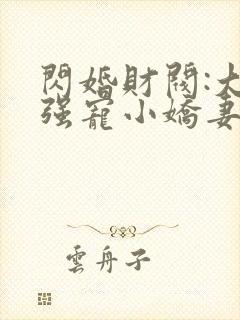 閃婚財閥:大
强寵小嬌妻
雲舟子